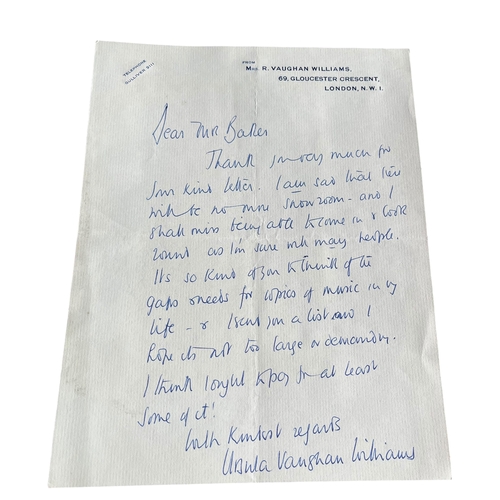 TELEPHONE
GULLIVER
FROM
MRS. R. VAUGHAN WILLIAMS,
69, GLOUCESTER CRESCENT,
LONDON, N.W.1.
Dear Mr Baker
Thank you very much for
your kind letter. I am sad that there
will be no more showroom - and I
shall miss being able to come in & look
round as I'm sure will many people.
It's so kind of you to think of the
gaps & needs for copies of music in my
life - & I send you a list and I
hope its not too large or demanding.
I think I ought to pay for at least
some of it!
With kindest regards
Ursula Vaughan Williams